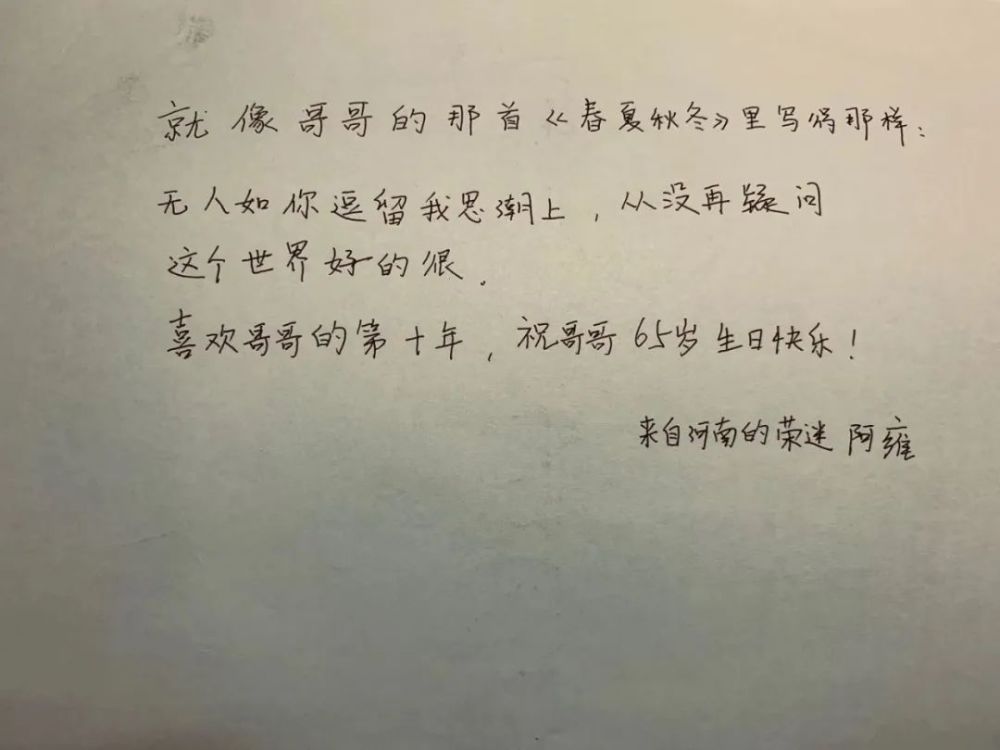 就像哥哥的那首《春夏秋冬》里写的那样：
无人如你逗留我思潮上，从没再疑问
这个世界好的很．
喜欢哥哥的第十年，祝哥哥65岁生日快乐！
来自河南的荣迷 阿雍